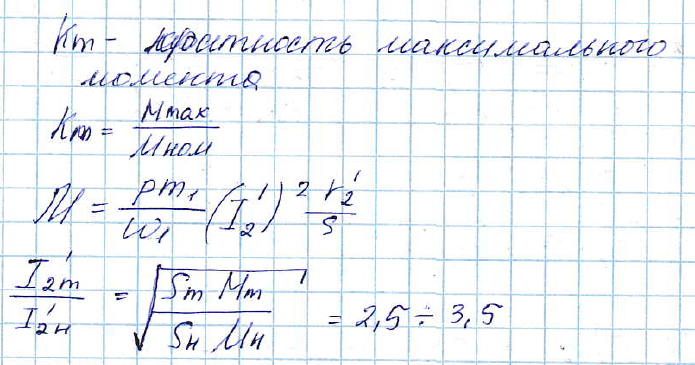 Km - кратность максимального
момента
Km = Mmax / Mном
M = pm₁ / ω₁ (I₂')² r₂' / s
I₂'m / I₂'н = √(Sm Mm / Sн Mн) = 2,5 ÷ 3,5